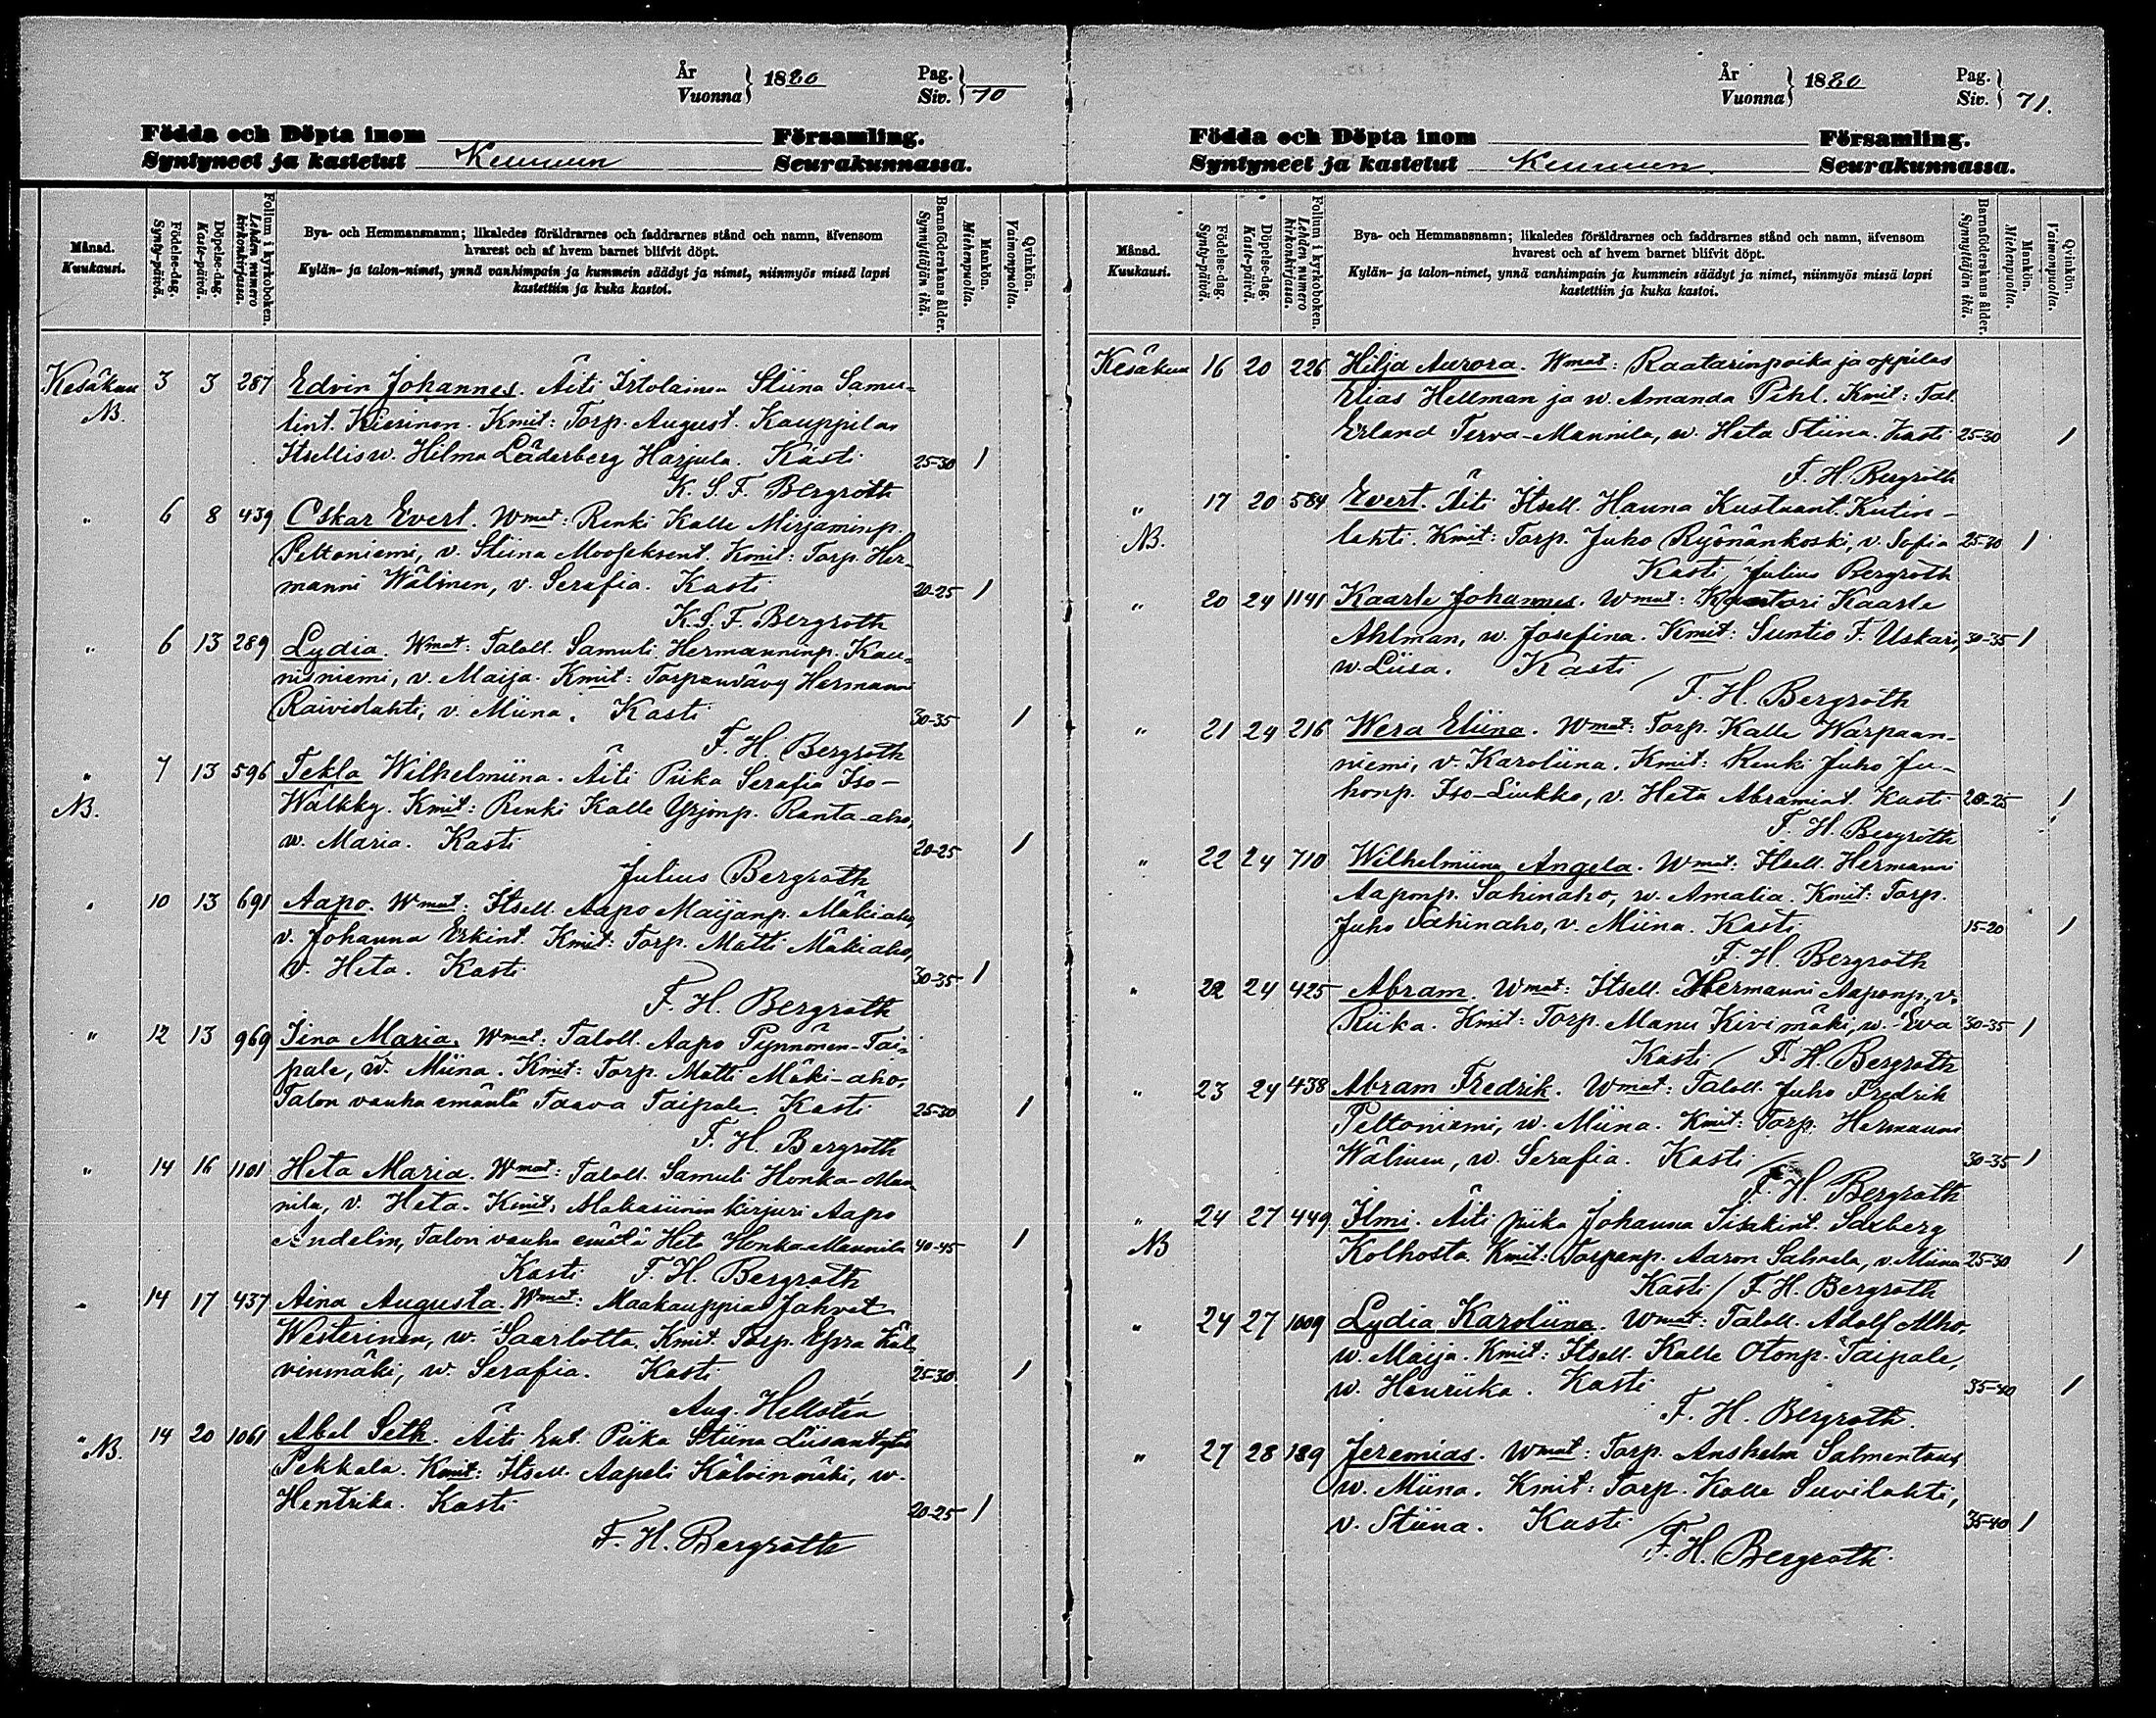 År
Vuonna } 1880
Pag.
Siv. } 70
Födda och Döpta inom Församling.
Syntyneet ja kastetut Keuruun Seurakunnassa.
Månad.
Kuukausi.
Födelse-dag.
Synty-päivä.
Döpelse-dag.
Kaste-päivä.
Folium i kyrkoboken.
Lehden numero
kirkonkirjassa.
Bya- och Hemmansnamn; likaledes föräldrarnes och faddrarnes stånd och namn, äfvensom
hvarest och af hvem barnet blifvit döpt.
Kylän- ja talon-nimet, ynnä vanhimpain ja kummein säädyt ja nimet, niinmyös missä lapsi
kastettiin ja kuka kastoi.
Barnaföderskans ålder.
Synnyttäjän ikä.
Mankön.
Miehenpuolia.
Qvinkön.
Vaimonpuolia.
Kesäkuu 3 3 287 Edvin Johannes. Äiti Irtolainen Stiina Samu-
NB. lint. Kiesinen. Kmit: Torp. August. Kauppila,
Itsellis w. Hilma Läderberg Harjula. Kasti 25-30 1
K. S. F. Bergroth
" 6 8 439 Oskar Evert. Wmat: Renki Kalle Mirjaminp.
Peltoniemi, v. Stiina Mooseksent. Kmit: Torp. Her-
manni Wälinen, v. Serafia. Kasti 20-25 1
K. S. F. Bergroth
" 6 13 289 Lydia. Wmat: Taloll. Samuli Hermanninp. Kau-
nisniemi, v. Maija. Kmit: Torpanvävy Hermanni
Raiviolahti, v. Miina. Kasti 30-35 1
F. H. Bergroth
" 7 13 596 Tekla Wilhelmiina. Äiti Piika Serafia Iso-
NB. Wälkky. Kmit: Renki Kalle Yrjönp. Ranta-aho,
w. Maria. Kasti 20-25 1
Julius Bergroth
" 10 13 691 Aapo. Wmat: Itsell. Aapo Maijanp. Mäkiaho,
v. Johanna Erkint. Kmit: Torp. Matti Mäkiaho,
v. Heta. Kasti 30-35 1
F. H. Bergroth
" 12 13 969 Iina Maria. Wmat: Taloll. Aapo Pynnönen-Tai-
pale, w. Miina. Kmit: Torp. Matti Mäki-aho,
Talon vanha emäntä Taava Taipale. Kasti 25-30 1
F. H. Bergroth
" 14 16 1101 Heta Maria. Wmat: Taloll. Samuli Honka-Man
nila, v. Heta. Kmit: Makasiinin kirjuri Aapo
Andelin, Talon vanha emätä Heta Honka-Mannila 40-45 1
Kasti F. H. Bergroth
" 14 17 437 Aina Augusta. Wmat: Maakauppias Jahvet
Westerinen, w. Saarlotta. Kmit. Torp. Esra Käl
vinmäki, w. Serafia. Kasti 25-30 1
Aug. Hellstén
" NB. 14 20 1061 Abel Seth. Äiti Ent. Piika Stiina Liisantytär
Pekkala. Kmit: Itsell. Aapeli Kälvinmäki, w.
Hentrika. Kasti 20-25 1
F. H. Bergroth
År
Vuonna } 1880
Pag.
Siv. } 71.
Födda och Döpta inom Församling.
Syntyneet ja kastetut Keuruun. Seurakunnassa.
Månad.
Kuukausi.
Födelse-dag.
Synty-päivä.
Döpelse-dag.
Kaste-päivä.
Folium i kyrkoboken.
Lehden numero
kirkonkirjassa.
Bya- och Hemmansnamn; likaledes föräldrarnes och faddrarnes stånd och namn, äfvensom
hvarest och af hvem barnet blifvit döpt.
Kylän- ja talon-nimet, ynnä vanhimpain ja kummein säädyt ja nimet, niinmyös missä lapsi
kastettiin ja kuka kastoi.
Barnaföderskans ålder.
Synnyttäjän ikä.
Mankön.
Miehenpuolia.
Qvinkön.
Vaimonpuolia.
Kesäkuu 16 20 226 Hilja Aurora. Wmat: Raatarinpoika ja oppilas
Elias Hellman ja w. Amanda Pihl. Kmit: Tal
Erland Terva-Mannila, w. Heta Stiina. Kasti 25-30 1
F. H. Bergroth
" 17 20 584 Evert. Äiti Itsell. Hanna Kustaant. Kutin-
NB. lahti. Kmit: Torp. Juho Ryönänkoski, v. Sofia 25-30 1
Kasti Julius Bergroth
" 20 24 1141 Kaarle Johannes. Wmat: Kanttori Kaarle
Ahlman, w. Josefina. Kmit: Suntio F. Uskari, 30-35 1
w. Liisa. Kasti /
F. H. Bergroth
" 21 24 216 Wera Eliina. Wmat: Torp. Kalle Warpaan-
niemi, v. Karoliina. Kmit: Renki Juho Ju-
honp. Iso-Liukko, v. Heta Abramint. Kasti 20-25 1
F. H. Bergroth
" 22 24 710 Wilhelmiina Angela. Wmat: Itsell. Hermanni
Aaponp. Sahinaho, w. Amalia. Kmit: Torp.
Juho Sahinaho, v. Miina. Kasti 15-20 1
F. H. Bergroth
" 22 24 425 Abram. Wmat: Itsell. Hermanni Aaponp., v.
Riika. Kmit: Torp. Manu Kivimäki, w. Eva 30-35 1
Kasti / F. H. Bergroth
" 23 24 438 Abram Fredrik. Wmat: Taloll. Juho Fredrik
Peltoniemi, w. Miina. Kmit: Torp. Hermanni
Wälinen, w. Serafia. Kasti 30-35 1
F. H. Bergroth
" 24 27 449 Ilmi. Äiti piika Johanna Iisakint. Saxberg
NB Kolhosta. Kmit: Torpanp. Aaron Sahala, v. Miina 25-30 1
Kasti / F. H. Bergroth
" 24 27 1009 Lydia Karoliina. Wmat: Taloll. Adolf Alho,
w. Maija. Kmit: Itsell. Kalle Otonp. Taipale,
w. Henriika. Kasti 35-40 1
F. H. Bergroth.
" 27 28 189 Jeremias. Wmat: Torp. Anshelm Salmentaus
w. Miina. Kmit: Torp. Kalle Suvilahti,
v. Stiina. Kasti 35-40 1
F. H. Bergroth.